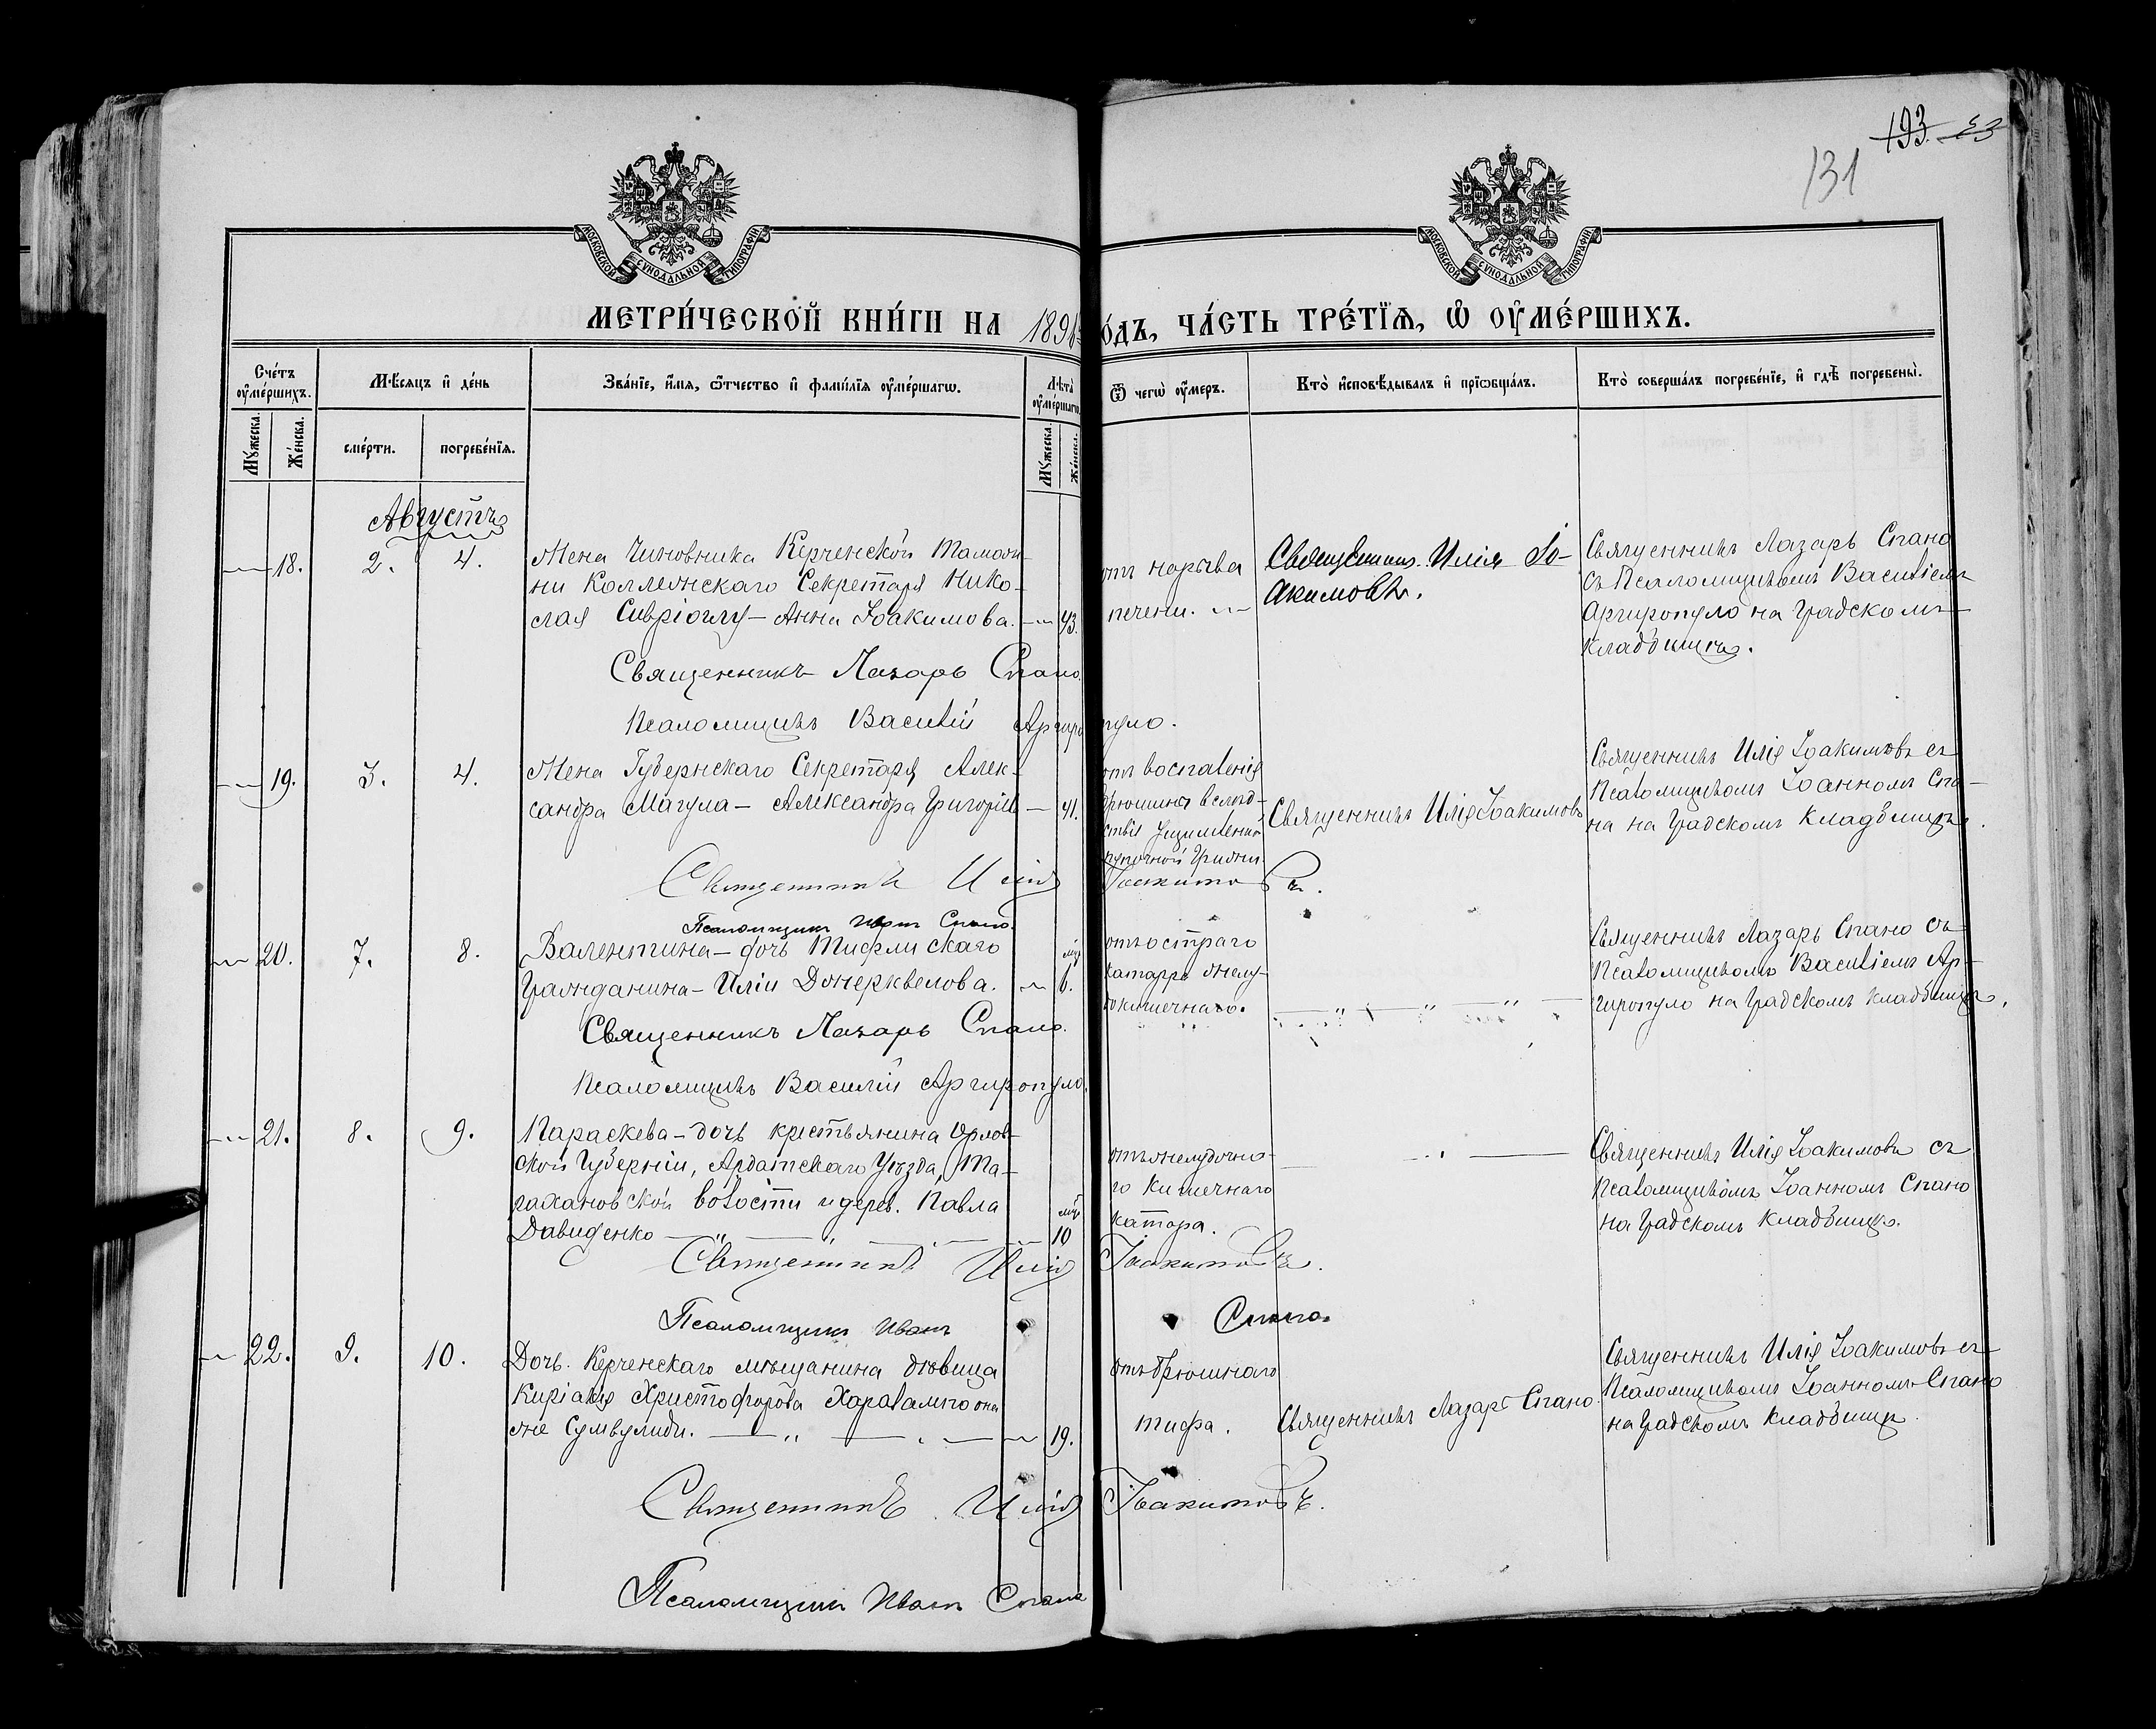 193. 23
131
МОСКОВСКОЙ СѴНОДАЛЬНОЙ ТИПОГРАФІИ
МОСКОВСКОЙ СѴНОДАЛЬНОЙ ТИПОГРАФІИ
МЕТРИ́ЧЕСКОЙ КНИ́ГИ НА 189 О́ДЪ, ЧА́СТЬ ТРЕ́ТІѦ, Ѡ҆ ОУ҆МЕ́РШИХЪ.
Сче́тъ оу҆ме́ршихъ.
Мѣ́сяцъ и҆ де́нь
Зва́нїе, и҆́мѧ, ѻ҆́тчество и҆ фамилїѧ оу҆ме́ршагѡ.
Лѣта̀ оу҆ме́ршагѡ
Ѿ чегѡ̀ оу҆́меръ.
Кто̀ и҆сповѣ́дывалъ и҆ прїѡбща́лъ.
Кто̀ соверша́лъ погребе́нїе, и҆ гдѣ̀ погребены̀.
Мꙋ́жеска. Же́нска.
сме́рти. погребе́нїѧ.
Мꙋ́жеска. Же́нска.
Августъ
18. 2. 4. Жена Чиновника Керченской Таможни Коллежскаго Секретаря Николая Сивріоглу – Анна Іоакимова. 43.
отъ нарыва печени.
Священникъ Илія Іоакимовъ.
Священникъ Лазарь Спано
съ Псаломщикомъ Василіемъ
Аргиропуло на Градскомъ
кладбищѣ.
Священникъ Лазарь Спано.
Псаломщикъ Василій Аргиропуло.
19. 3. 4. Жена Губернскаго Секретаря Александра Магула – Александра Григоріев 41.
отъ воспаленія
брюшины вслѣдствіе ущемленной
пупочной грыжи
Священникъ Илія Іоакимовъ
Священникъ Илія Іоакимовъ съ
Псаломщикомъ Іоанномъ Спано на Градскомъ кладбищѣ.
Священникъ Илія Іоакимовъ.
Псаломщикъ Иванъ Спано.
20. 7. 8. Валентина – дочь Тифлискаго
Гражданина – Иліи Донерквелова. мѣс. 6.
отъ остраго
катарра желудокишечнаго.
Священникъ Лазарь Спано съ
Псаломщикомъ Василіемъ Аргиропуло на Градскомъ кладбищѣ.
Священникъ Лазарь Спано.
Псаломщикъ Василій Аргиропуло.
21. 8. 9. Параскева – дочь крестьянина Орловской Губерніи, Ардатскаго Уѣзда,
волости и дерев. Павла
Давиденко мѣс. 10
отъ желудочно-
го кишечнаго
катара.
Священникъ Илія Іоакимовъ съ
Псаломщикомъ Іоанномъ Спано
на Градскомъ кладбищѣ.
Священникъ Илія Іоакимовъ.
Псаломщикъ Иванъ Спано.
22. 9. 10. Дочь Керченскаго мѣщанина дѣвица
Киріакія Христофорова Харалампо она
же Сумвулиди. 19.
отъ брюшнаго
тифа.
Священникъ Лазарь Спано.
Священникъ Илія Іоакимовъ съ
Псаломщикомъ Іоанномъ Спано
на Градскомъ кладбищѣ.
Священникъ Илія Іоакимовъ.
Псаломщикъ Иванъ Спано